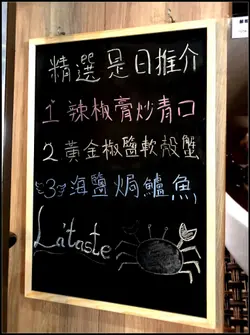 精選是日推介
1 辣椒膏炒青口
2 黃金椒鹽軟殼蟹
3 海鹽焗鱸魚
La'taste